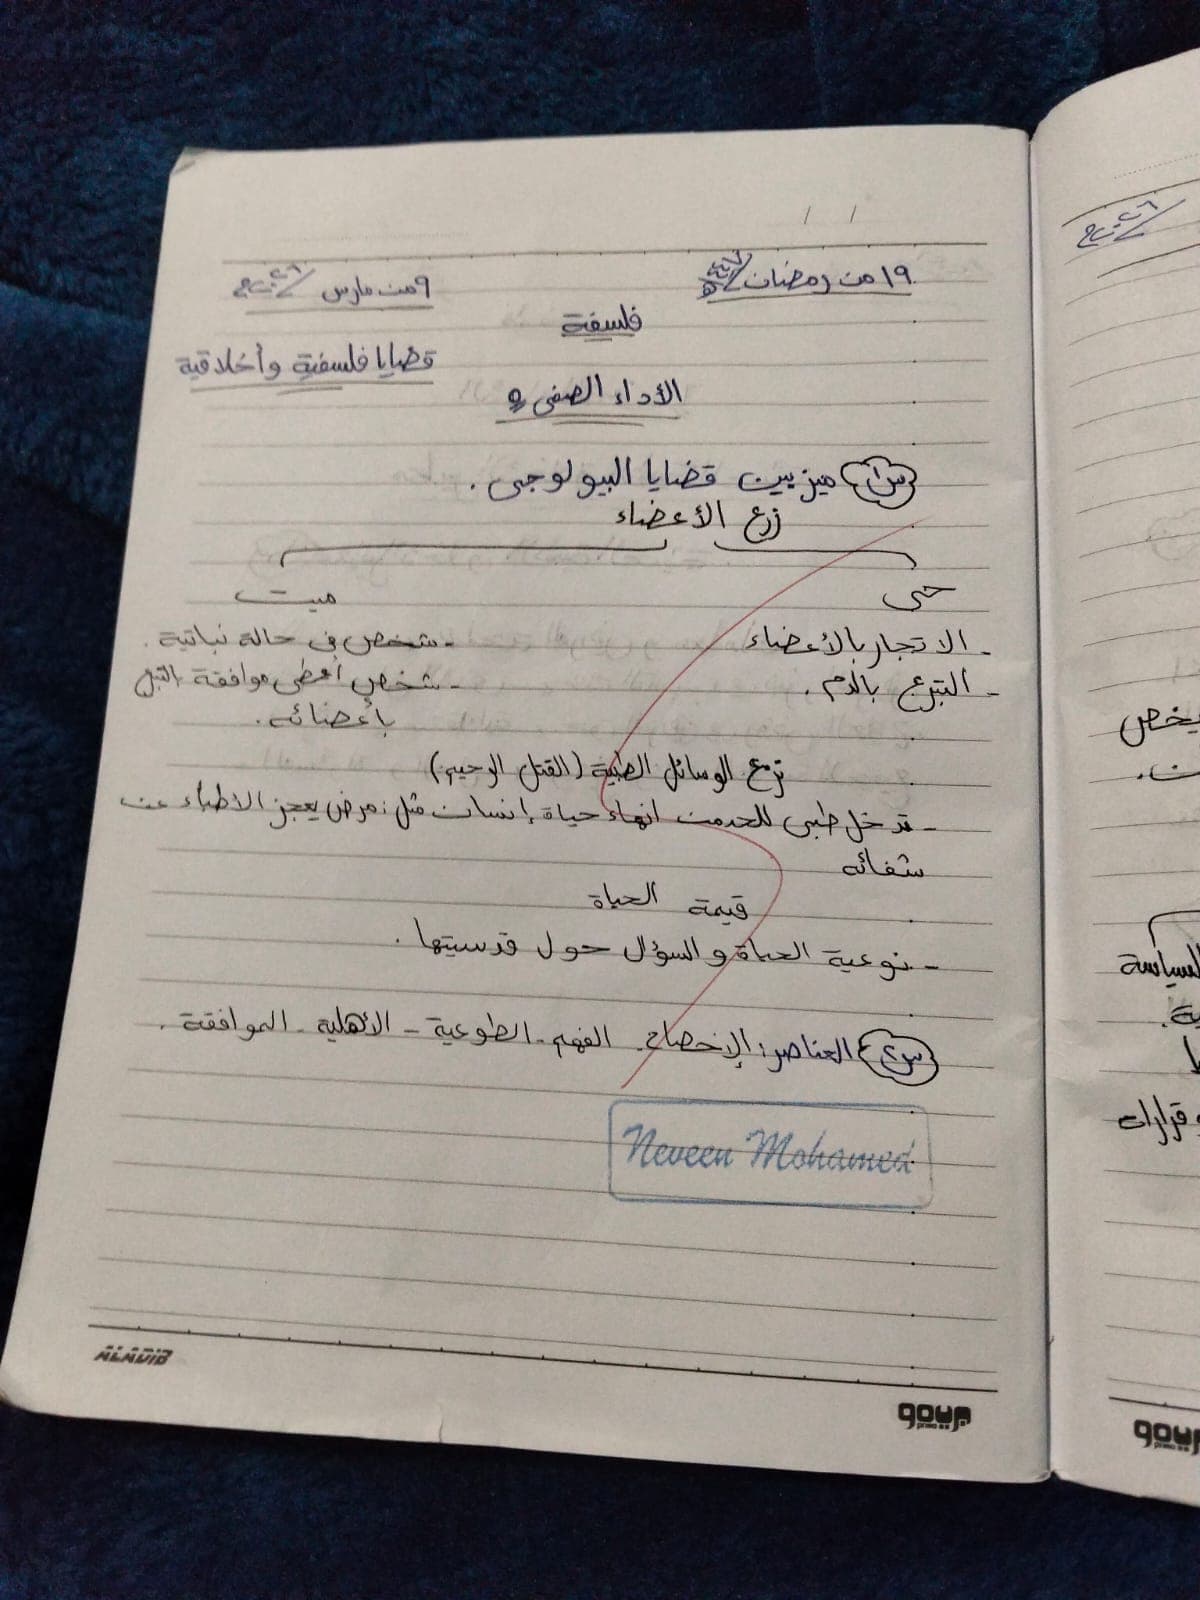 ١٩ من رمضان ١٤٤٧هـ
٩ من مارس ٢٠٢٦م
فلسفة
قضايا فلسفية وأخلاقية
الأداء الصفى
س١ ميز بين قضايا البيولوجى.
زرع الأعضاء
حى
ميت
- الاتجار بالأعضاء
- شخص فى حالة نباتية.
- التبرع بالدم.
- شخص أعطى موافقة
بأعضائه.
نزع الوسائل الطبية (القتل الرحيم)
- تدخل طبى انهاء حياة إنسان مثل: مرض يعجز الأطباء عن
شفائه
قيمة الحياة
- نوعية الحياة والسؤال حول قدسيتها.
س٢ العناصر: الإفصاح - الفهم - الطوعية - الأهلية - الموافقة.
Neveen Mohamed
ALADIB
group
يخص
السياسة
قرارات